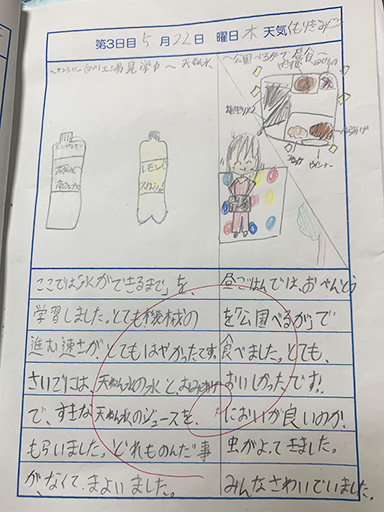 第3日目 5月22日 曜日 木 天気(くもりきみ)
工場見学中～天ねん水
～公園べるがで昼食～
レモン
ウインナー
ここでは「水ができるまで」を、
学習しました。とても機械の
進む速さが、とてもはやかったです。
さいごには、天ねん水の水と、おみやげ
で、すきな天ねん水のジュースを、
もらいました。どれものんだ事
がなくて、まよいました。
昼ごはんでは、おべんとう
を「公園べるが」で
食べました。とても、
おいしかったです!
においが良いのか、
虫がよってきました。
みんなさわいでいました。